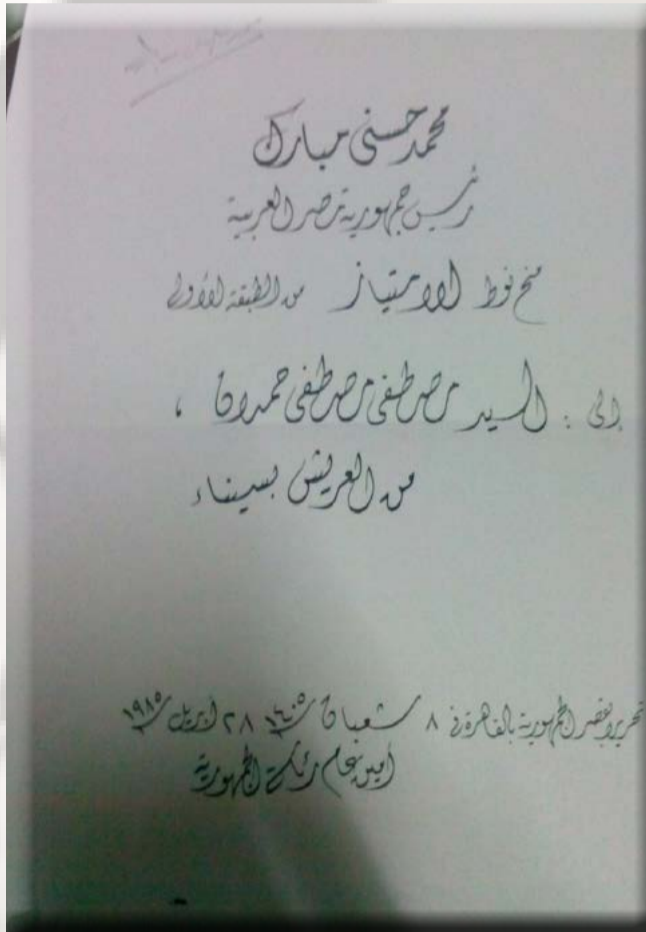 محمد حسنى مبارك
رئيس جمهورية مصر العربية
منح نوط الامتياز من الطبقة الأولى
إلى : السيد مصطفى مصطفى حمدان ،
من العريش بسيناء
تحريرا بقصر الجمهورية بالقاهرة فى ٨ شعبان ١٤٠٥ ٢٨ ابريل ١٩٨٥
أمين عام رئاسة الجمهورية